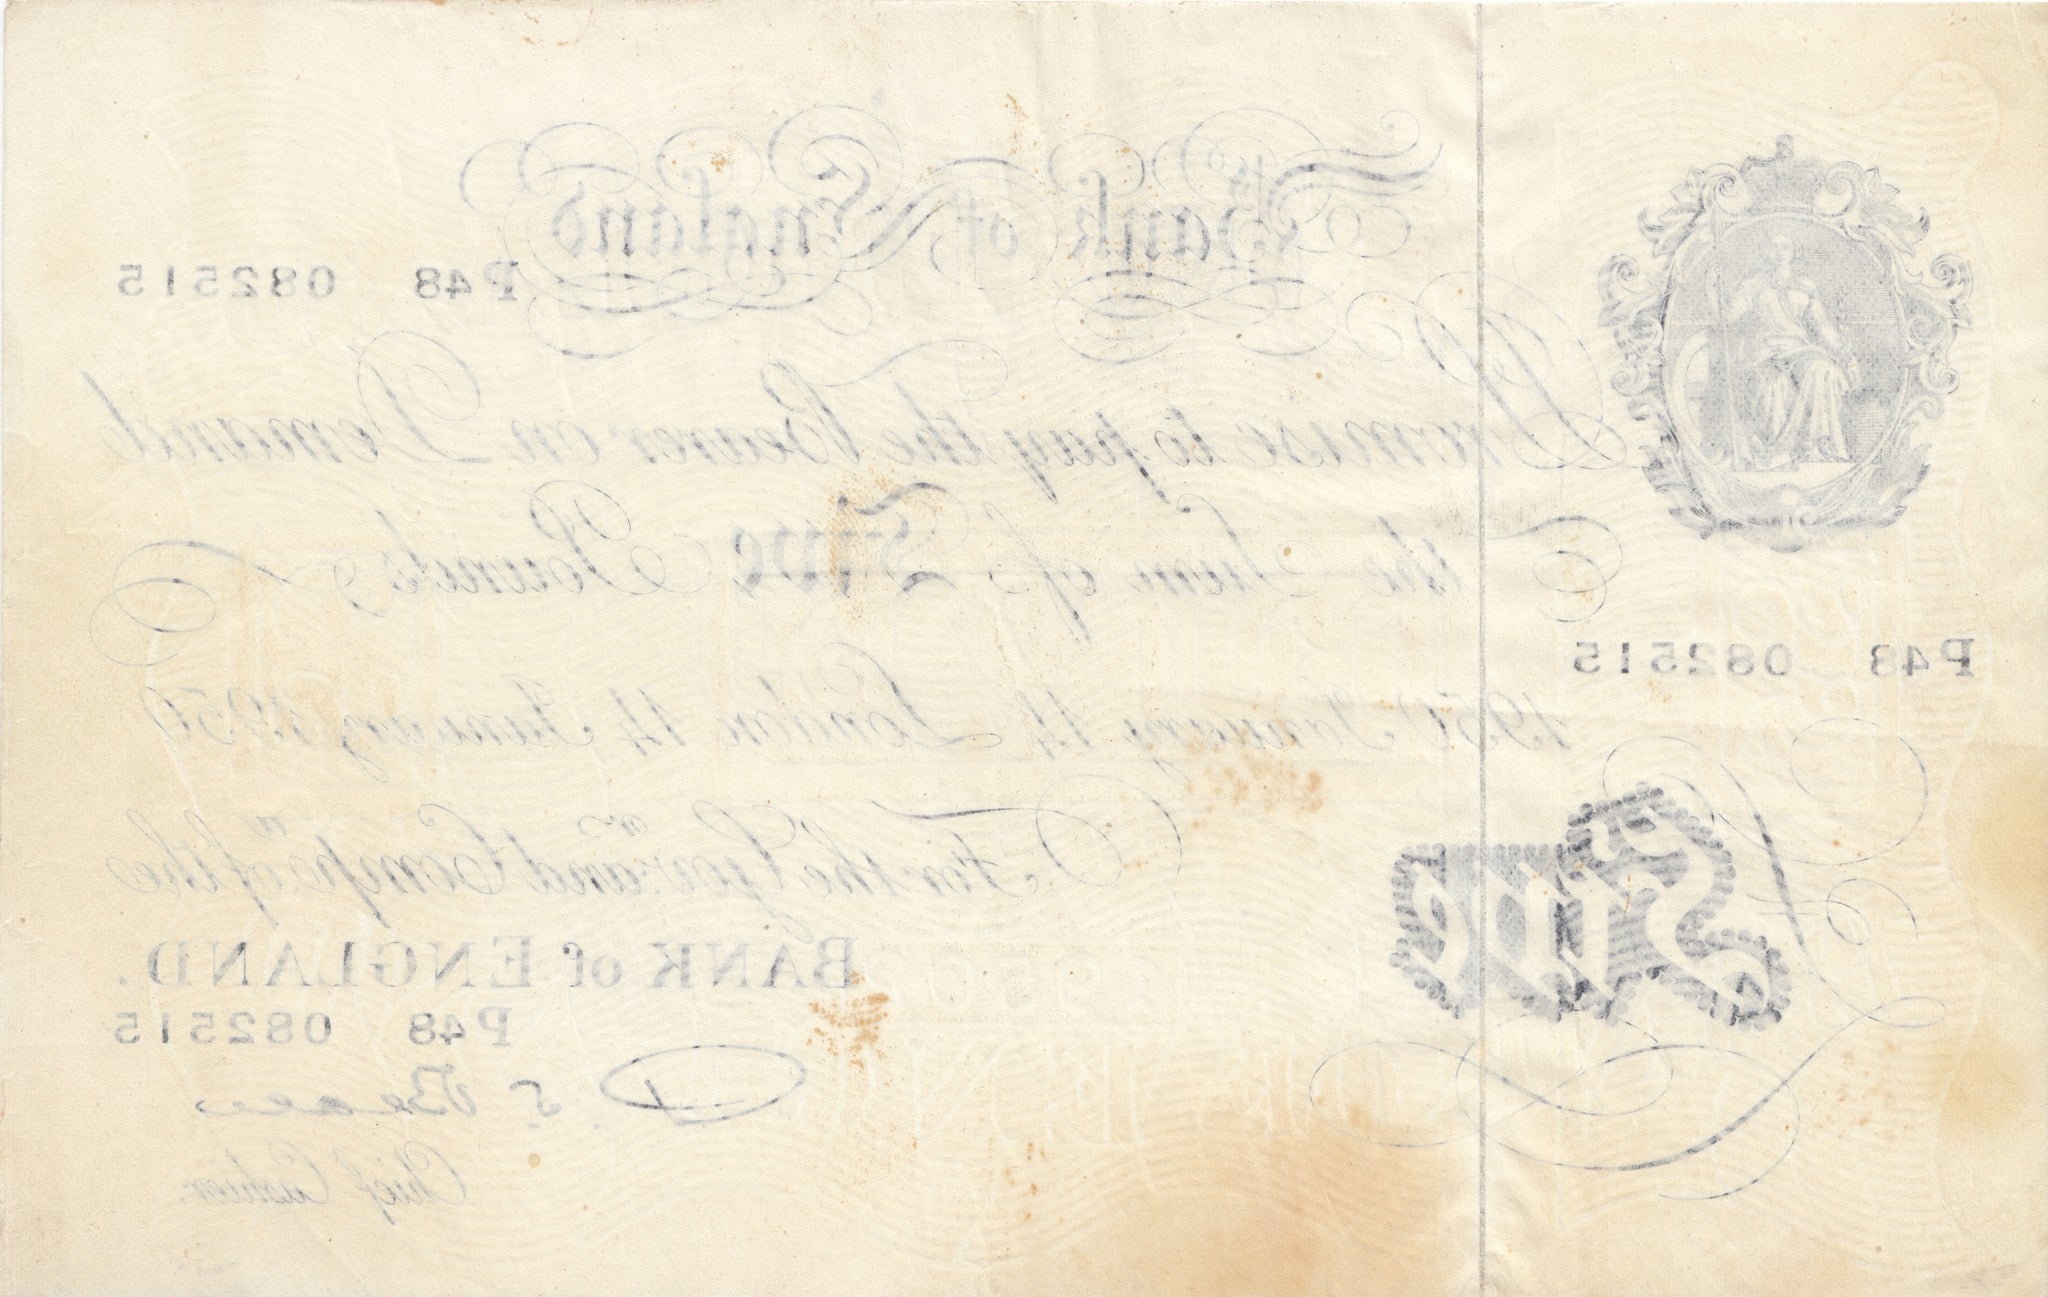 Bank of England
P48 082515
Promise to pay the Bearer on Demand
the Sum of Five Pounds
P48 082515
1950 January 14 London 14 January 1950
For the Govr. and Compa. of the
Five
BANK of ENGLAND.
P48 082515
Chief Cashier.